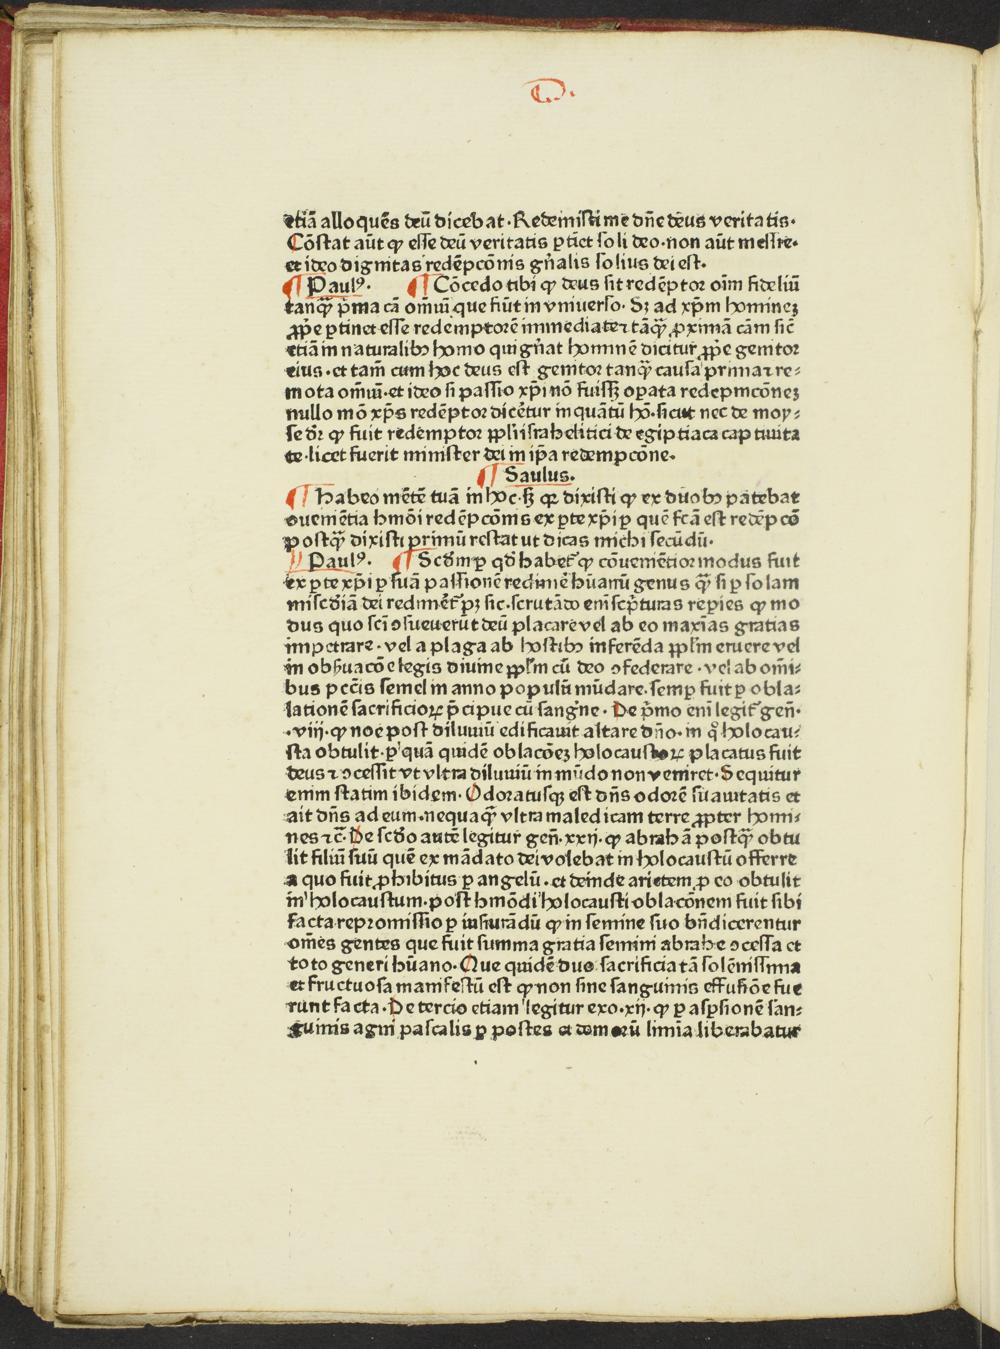 D.
etiā alloquēs deū dicebat·Redemisti me dn̄e deus veritatis·
Cōstat aūt ꝙ esse deū veritatis ꝑtiet̄ soli deo·non aūt messie·
et ideo dignitas redēpcōnis gn̄alis solius dei est·
¶ Paulꝰ· ¶ Cōcedo tibi ꝙ deus sit redēptor oīm fideliū
tanqᷓ pͥma cā omniū que fiūt in vniuerso· Sꝫ ad xp̄m homineꝫ
ꝓpͥe ꝑtinet esse redemptorē immediate ⁊ tāqᷓ ꝓximā cām sic̄
etiā in naturalibꝫ homo qui gn̄at hominē dicitur ꝓpͥe genitor
eius·et tam̄ cum hoc deus est genitor tanqᷓ causa prima ⁊ re⸗
mota omniū·et ideo si passio xp̄i nō fuissꝫ oꝑata redempcōneꝫ
nullo mō xp̄s redēptor dicētur inquātū hō·sicut nec de moy⸗
se dr̄ ꝙ fuit redemptor ppl̄i israhelitici de egiptiaca captiuita
te·licet fuerit minister dei in ip̄a redempcōne·
¶ Saulus·
¶ Habeo mētē tuā in hoc·sꝫ qꝛ dixisti ꝙ ex duobꝫ patebat
ouenientia hmōi redēpcōnis ex ꝑte xp̄i ꝑ quē fcā est redēpcō
postqᷓ dixisti primū restat ut dicas michi secūdū·
¶ Paulꝰ· ¶ Scdm̄ ꝑ qd̄ habet᷑ ꝙ cōuenientior modus fuit
ex ꝑte xp̄i ꝑ suā passionē redimē hūanū genus qᷓ si ꝑ solam
miscd̄iā dei redimet᷑ pꝫ sic·scrutādo eni scpͥturas repies ꝙ mo
dus quo sci ꝯsueuerūt deū placare vel ab eo maxīas gratias
impetrare·vel a plaga ab hostibꝫ inferēda ppl̄m eruere vel
in obẜuacōe legis diuine ppl̄m cū deo ꝯfederare·vel ab omī⸗
bus pcc̄is semel in anno populū mūdare·semꝑ fuit ꝑ obla⸗
lationē sacrificioꝝ p̄cipue cū sangͥne·De pͥmo eni legit᷑ gen̄·
·viij·ꝙ noe post diluuiū edificauit altare dn̄o·in qͦ holocau⸗
sta obtulit·ꝑ quā quidē oblacōeꝫ holocaustoꝝ placatus fuit
deus ⁊ ꝯcessit vt vltra diluuiū in mūdo non veniret·Sequitur
enim statim ibidem·Odoratusqꝫ est dn̄s odorē suauitatis et
ait dn̄s ad eum·nequaqᷓ vltra maledicam terre ꝓpter homi⸗
nes ⁊c̄·De scd̄o autē legitur gen̄·xxij·ꝙ abrahā postqᷓ obtu
lit filiū suū quē ex mādato dei volebat in holocaustū offerre
a quo fuit ꝓhibitus ꝑ angelū·et deinde arietem ꝓ eo obtulit
in holocaustum·post hmōdi holocausti oblacōnem fuit sibi
facta repromissio ꝑ iusiurādū ꝙ in semine suo bn̄dicerentur
omēs gentes que fuit summa gratia semini abrahe ꝯcessa et
toto generi hūano·Que quidē duo sacrificia tā solēnissima
et fructuosa manifestū est ꝙ non sine sanguinis effusiōe fue
runt facta·De tercio etiam legitur exo·xij·ꝙ ꝑ asꝑsionē san⸗
guinis agni pascalis ꝑ postes et domorū liminia liberabatur